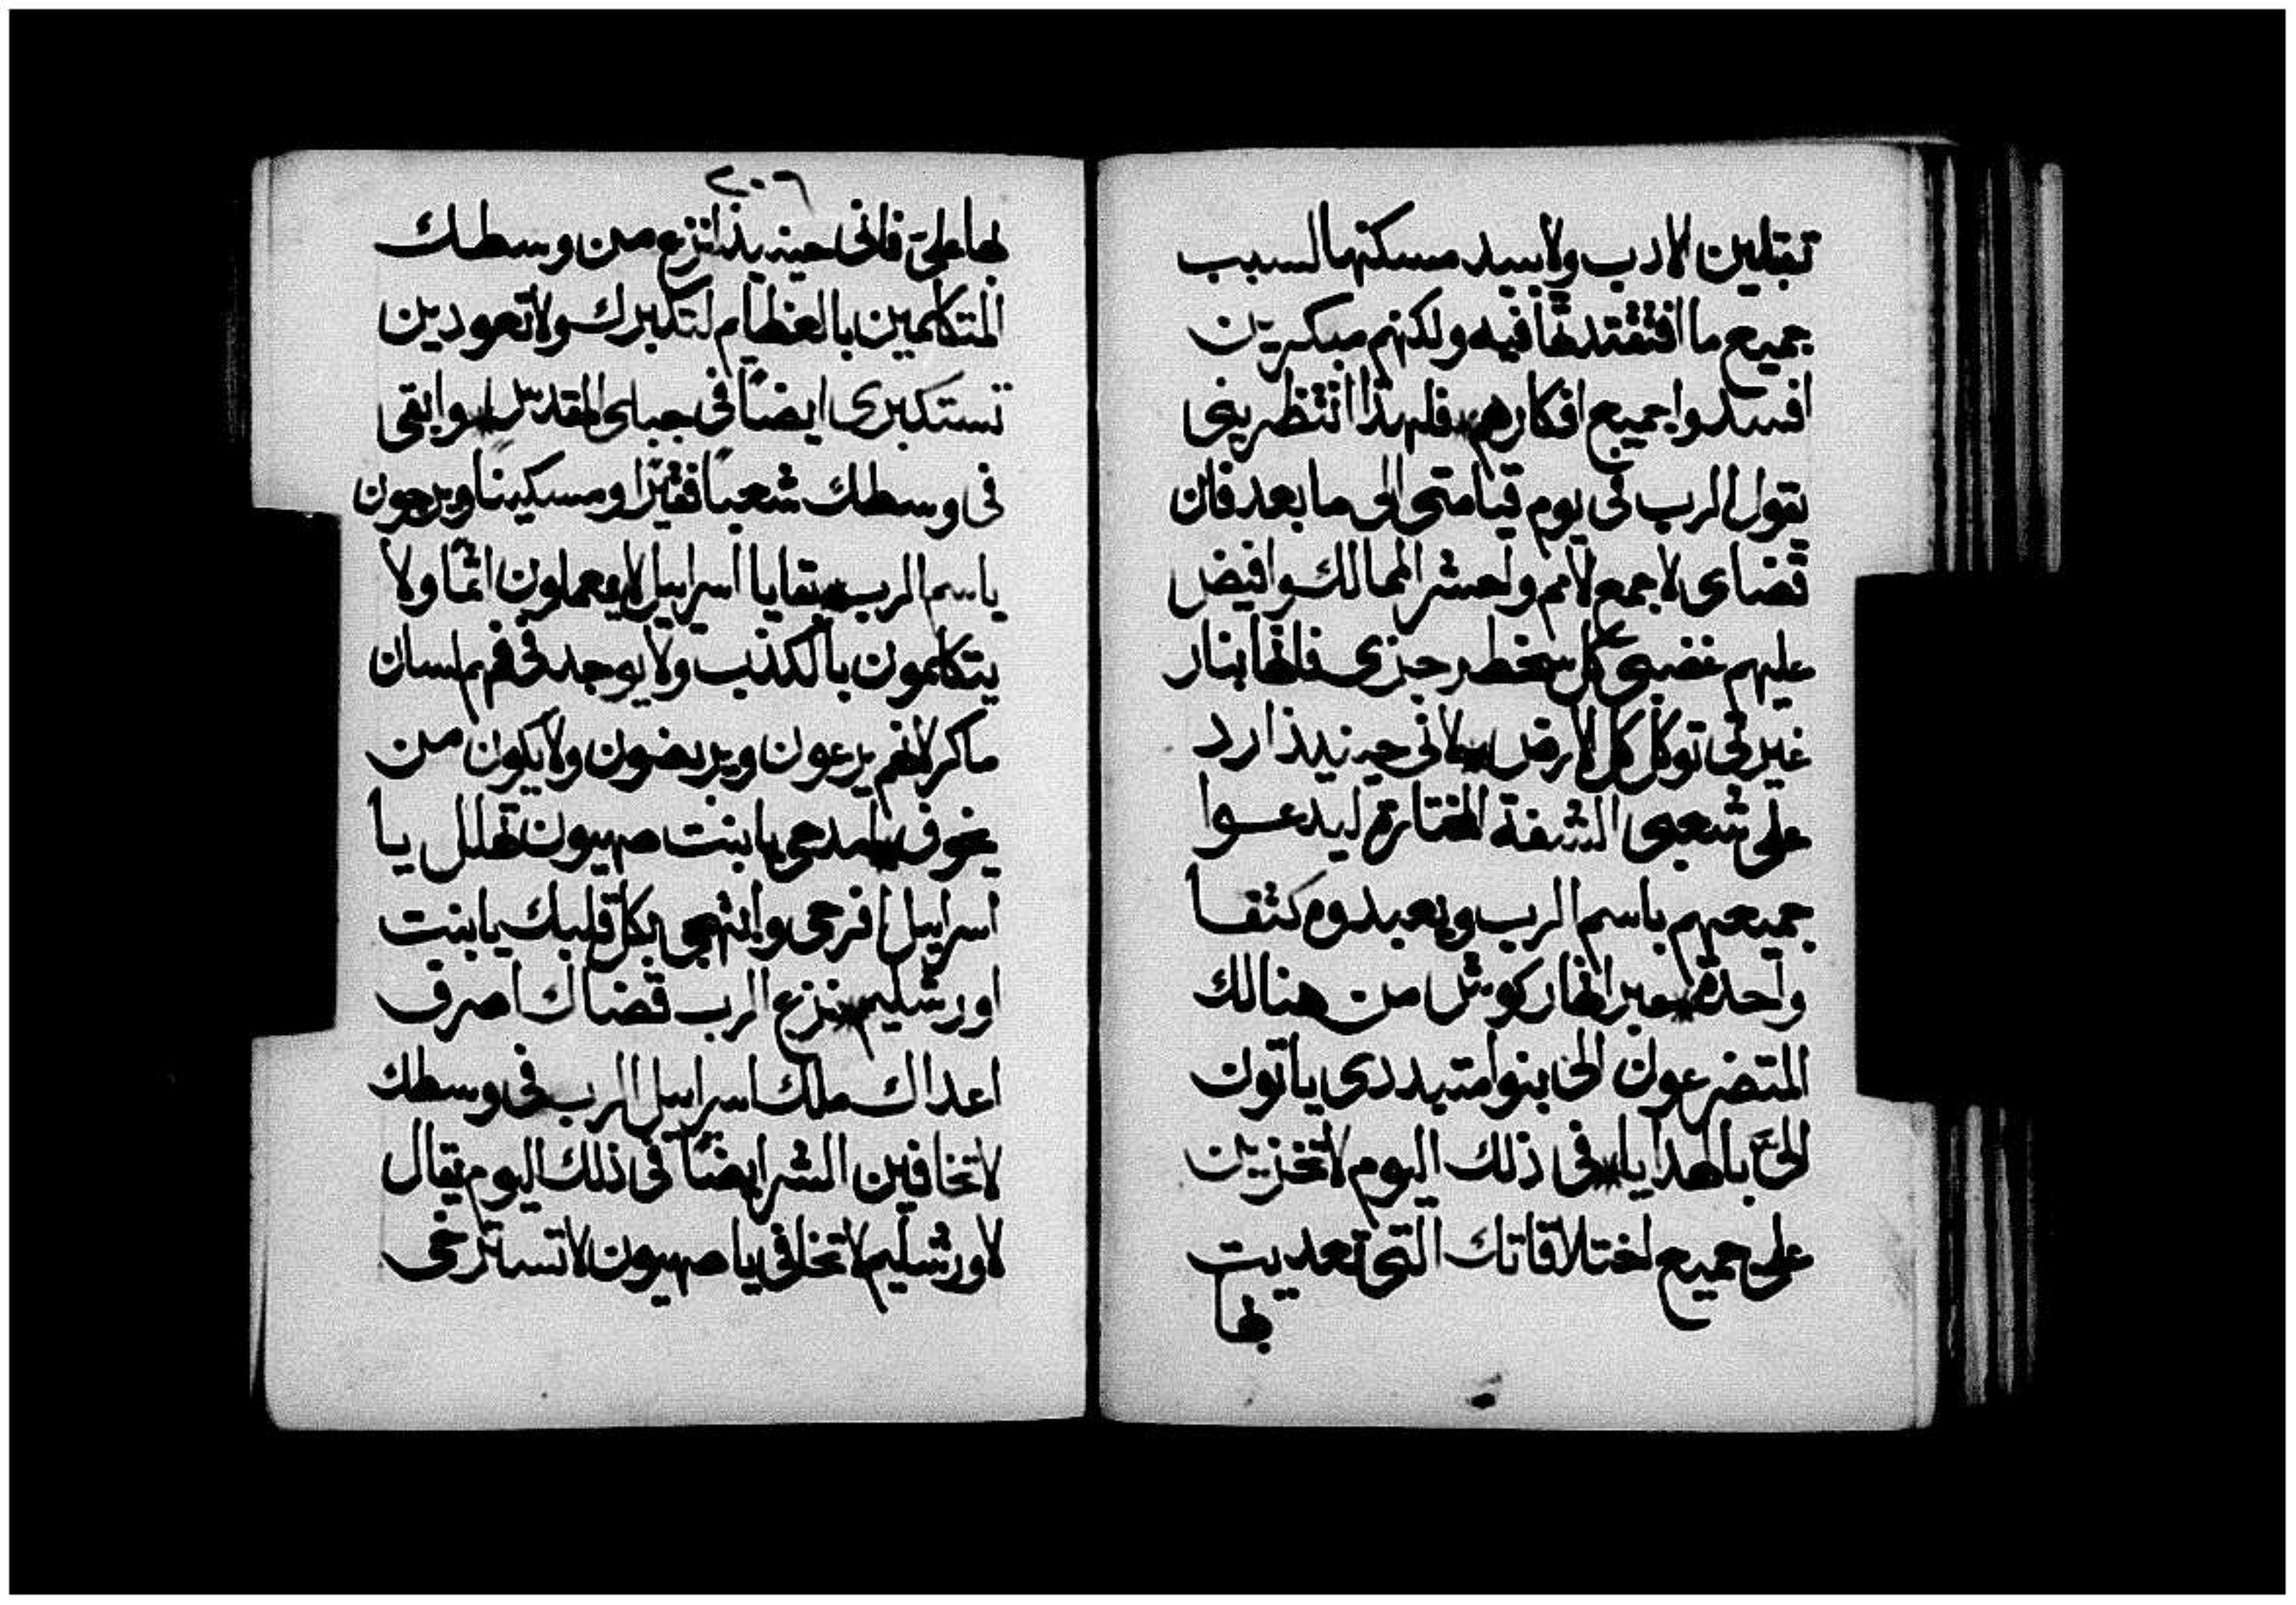 تقبلين الادب ولا يبيد مسكنها لسبب
جميع ما افتقدتها فيه ولكنهم مبكرين
افسدوا جميع افكارهم فلهذا انتظريني
يقول الرب في يوم قيامتى الى ما بعد فان
قضاى لاجمع الامم ولحشر الممالك وافيض
عليهم غضبي كل سخط رجزى فانها بنار
غيرتى توكل كل الارض لانى حينيذ ارد
على شعبى الشفة المختارة ليدعوا
جميعهم باسم الرب ويعبدوه كثفا
واحدة عبر انهار كوش من هنالك
المتضرعون الى بنوا متبددى ياتون
الىَّ بالهدايا فى ذلك اليوم لاتخزين
على جميع اختلاقاتك التى تعديت
بها
٢٠٦
بها على فانى حينيذ انزع من وسطك
المتكلمين بالعظايم لتكبرك ولا تعودين
تستكبرى ايضًا فى جبلى المقدس وابقى
فى وسطك شعبًا فقيرًا ومسكينًا ويرجون
ياسم الرب بقايا اسراييل لا يعملون اثمًا ولا
يتكلمون بالكذب ولا يوجد فى فمهم لسان
ماكر لانهم يرعون ويربضون ولا يكون من
يخوف امدحى يا بنت صهيون تهلل يا
اسراييل افرحى وابتهجى بكل قلبك يا بنت
اورشليم نزع الرب قضاك اصرف
اعداك ملك اسراييل الرب فى وسطك
لا تخافين الشر ايضًا فى ذلك اليوم يقال
لاورشليم لا تخافى يا صهيون لا تسترخى